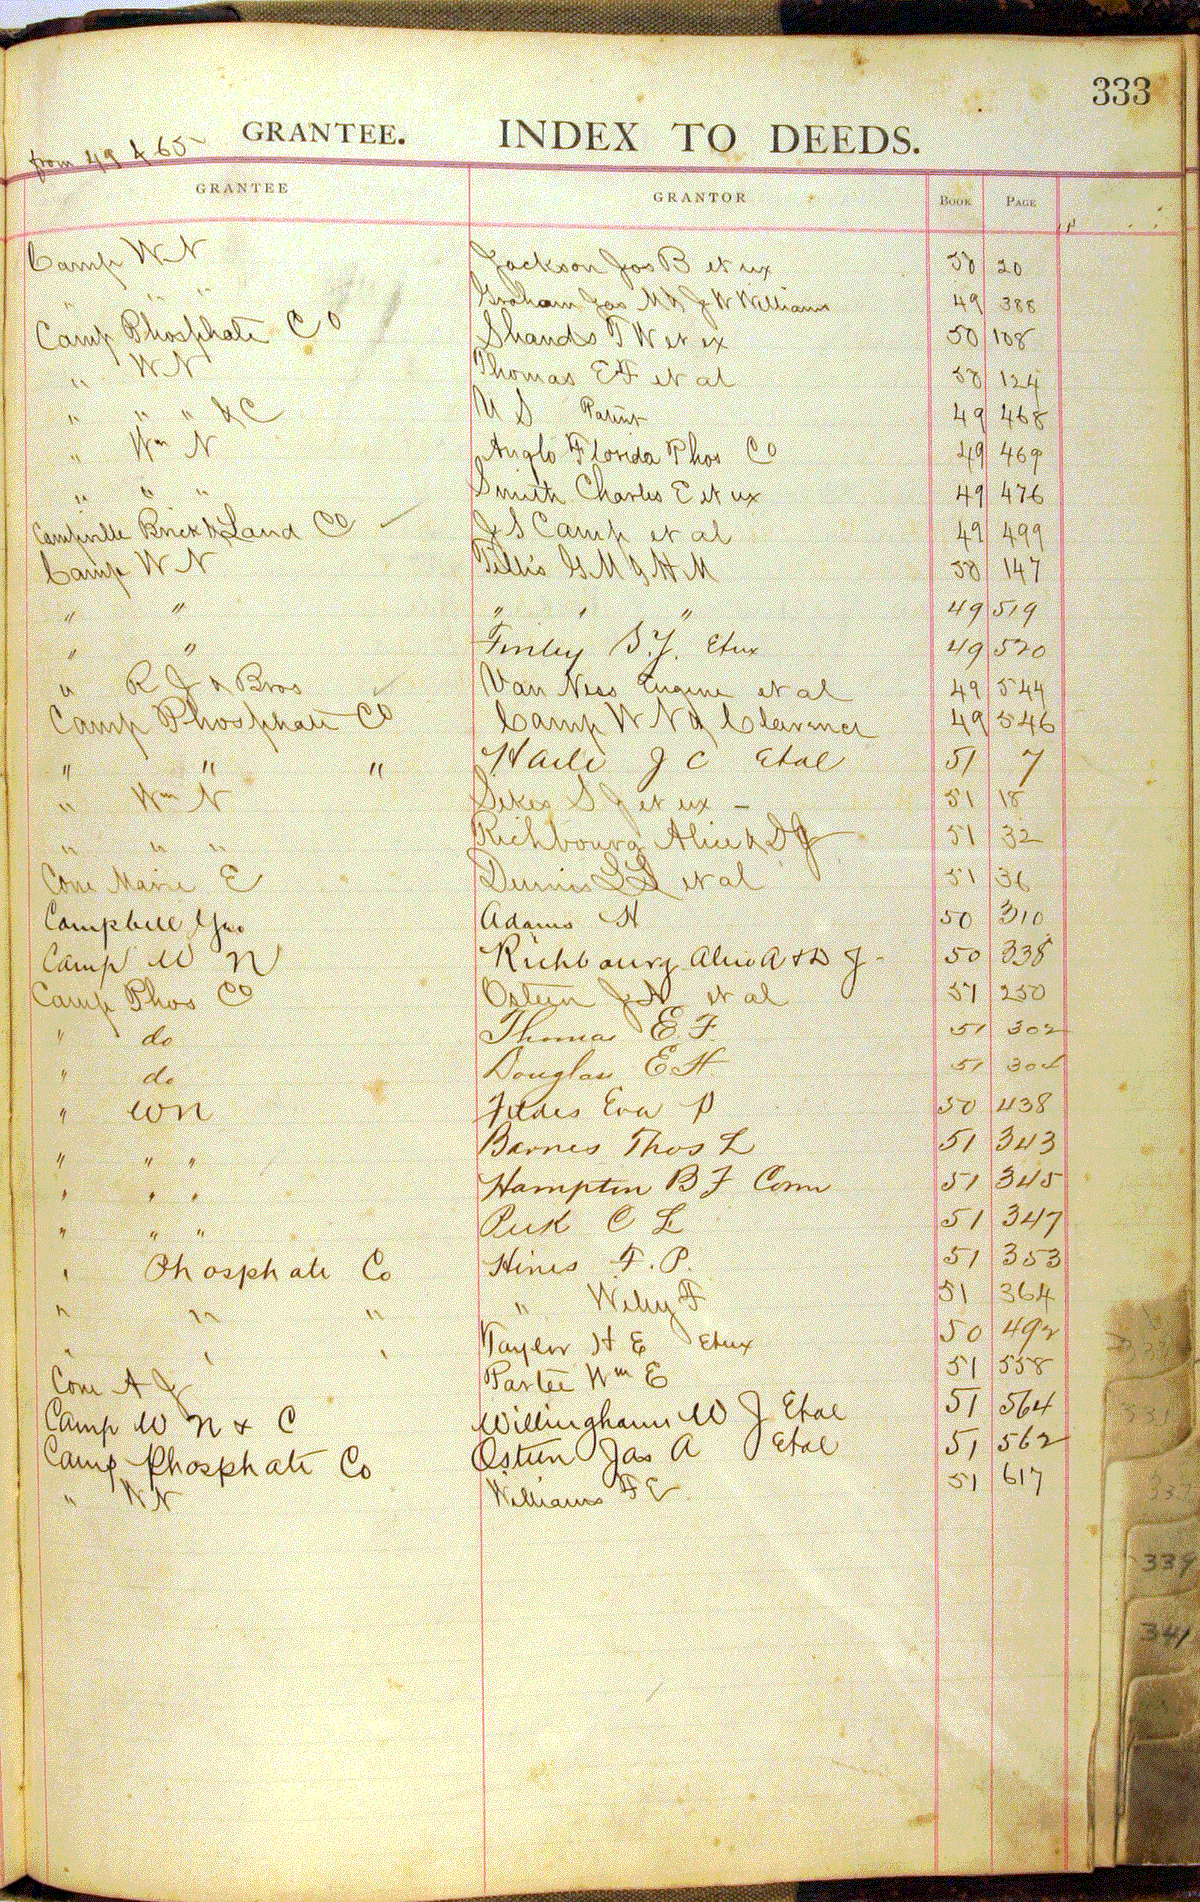 333
GRANTEE. INDEX TO DEEDS.
from 49 to 65
GRANTEE GRANTOR BOOK PAGE
Camp W N Jackson Jas B et ux 50 20
" " " Graham Jas M & J W Williams 49 388
Camp Phosphate Co Shands T W et ux 50 108
" W N Thomas E F et al 50 124
" " " & C U S Patent 49 468
" Wm N Anglo Florida Phos Co 49 469
" " " Smith Charles E et ux 49 476
Campville Brick & Land Co J S Camp et al 49 499
Camp W N Tillis G M & H M 50 147
" " " " " 49 519
" " Finley B. Y. Etux 49 520
" R J & Bros Van Ness Eugene et al 49 544
Camp Phosphate Co Camp W N & Clarence 49 546
" " " Haile J C Etal 51 7
" Wm N Sikes S J et ux 51 18
" " " Richbourg Alice & D J 51 32
Cone E et al 51 36
Campbell Geo Adams H 50 310
Camp W N Richbourg Alice A & D J 50 338
Camp Phos Co Osteen J A et al 51 250
" do Thomas E. F. 51 302
" do Douglas E H 51 304
" W N Eva P 50 438
" " " Barnes Thos L 51 343
" " " Hampton B F Com 51 345
" " " Peek C L 51 347
" Phosphate Co Hines F. P. 51 353
" " " " Wiley F 51 364
" " " Taylor H E Etux 50 492
Cone A J Partee Wm E 51 558
Camp W N & C Willingham W J Etal 51 564
Camp Phosphate Co Osteen Jas A Etal 51 562
" W N Williams F E 51 617
331
337
339
341